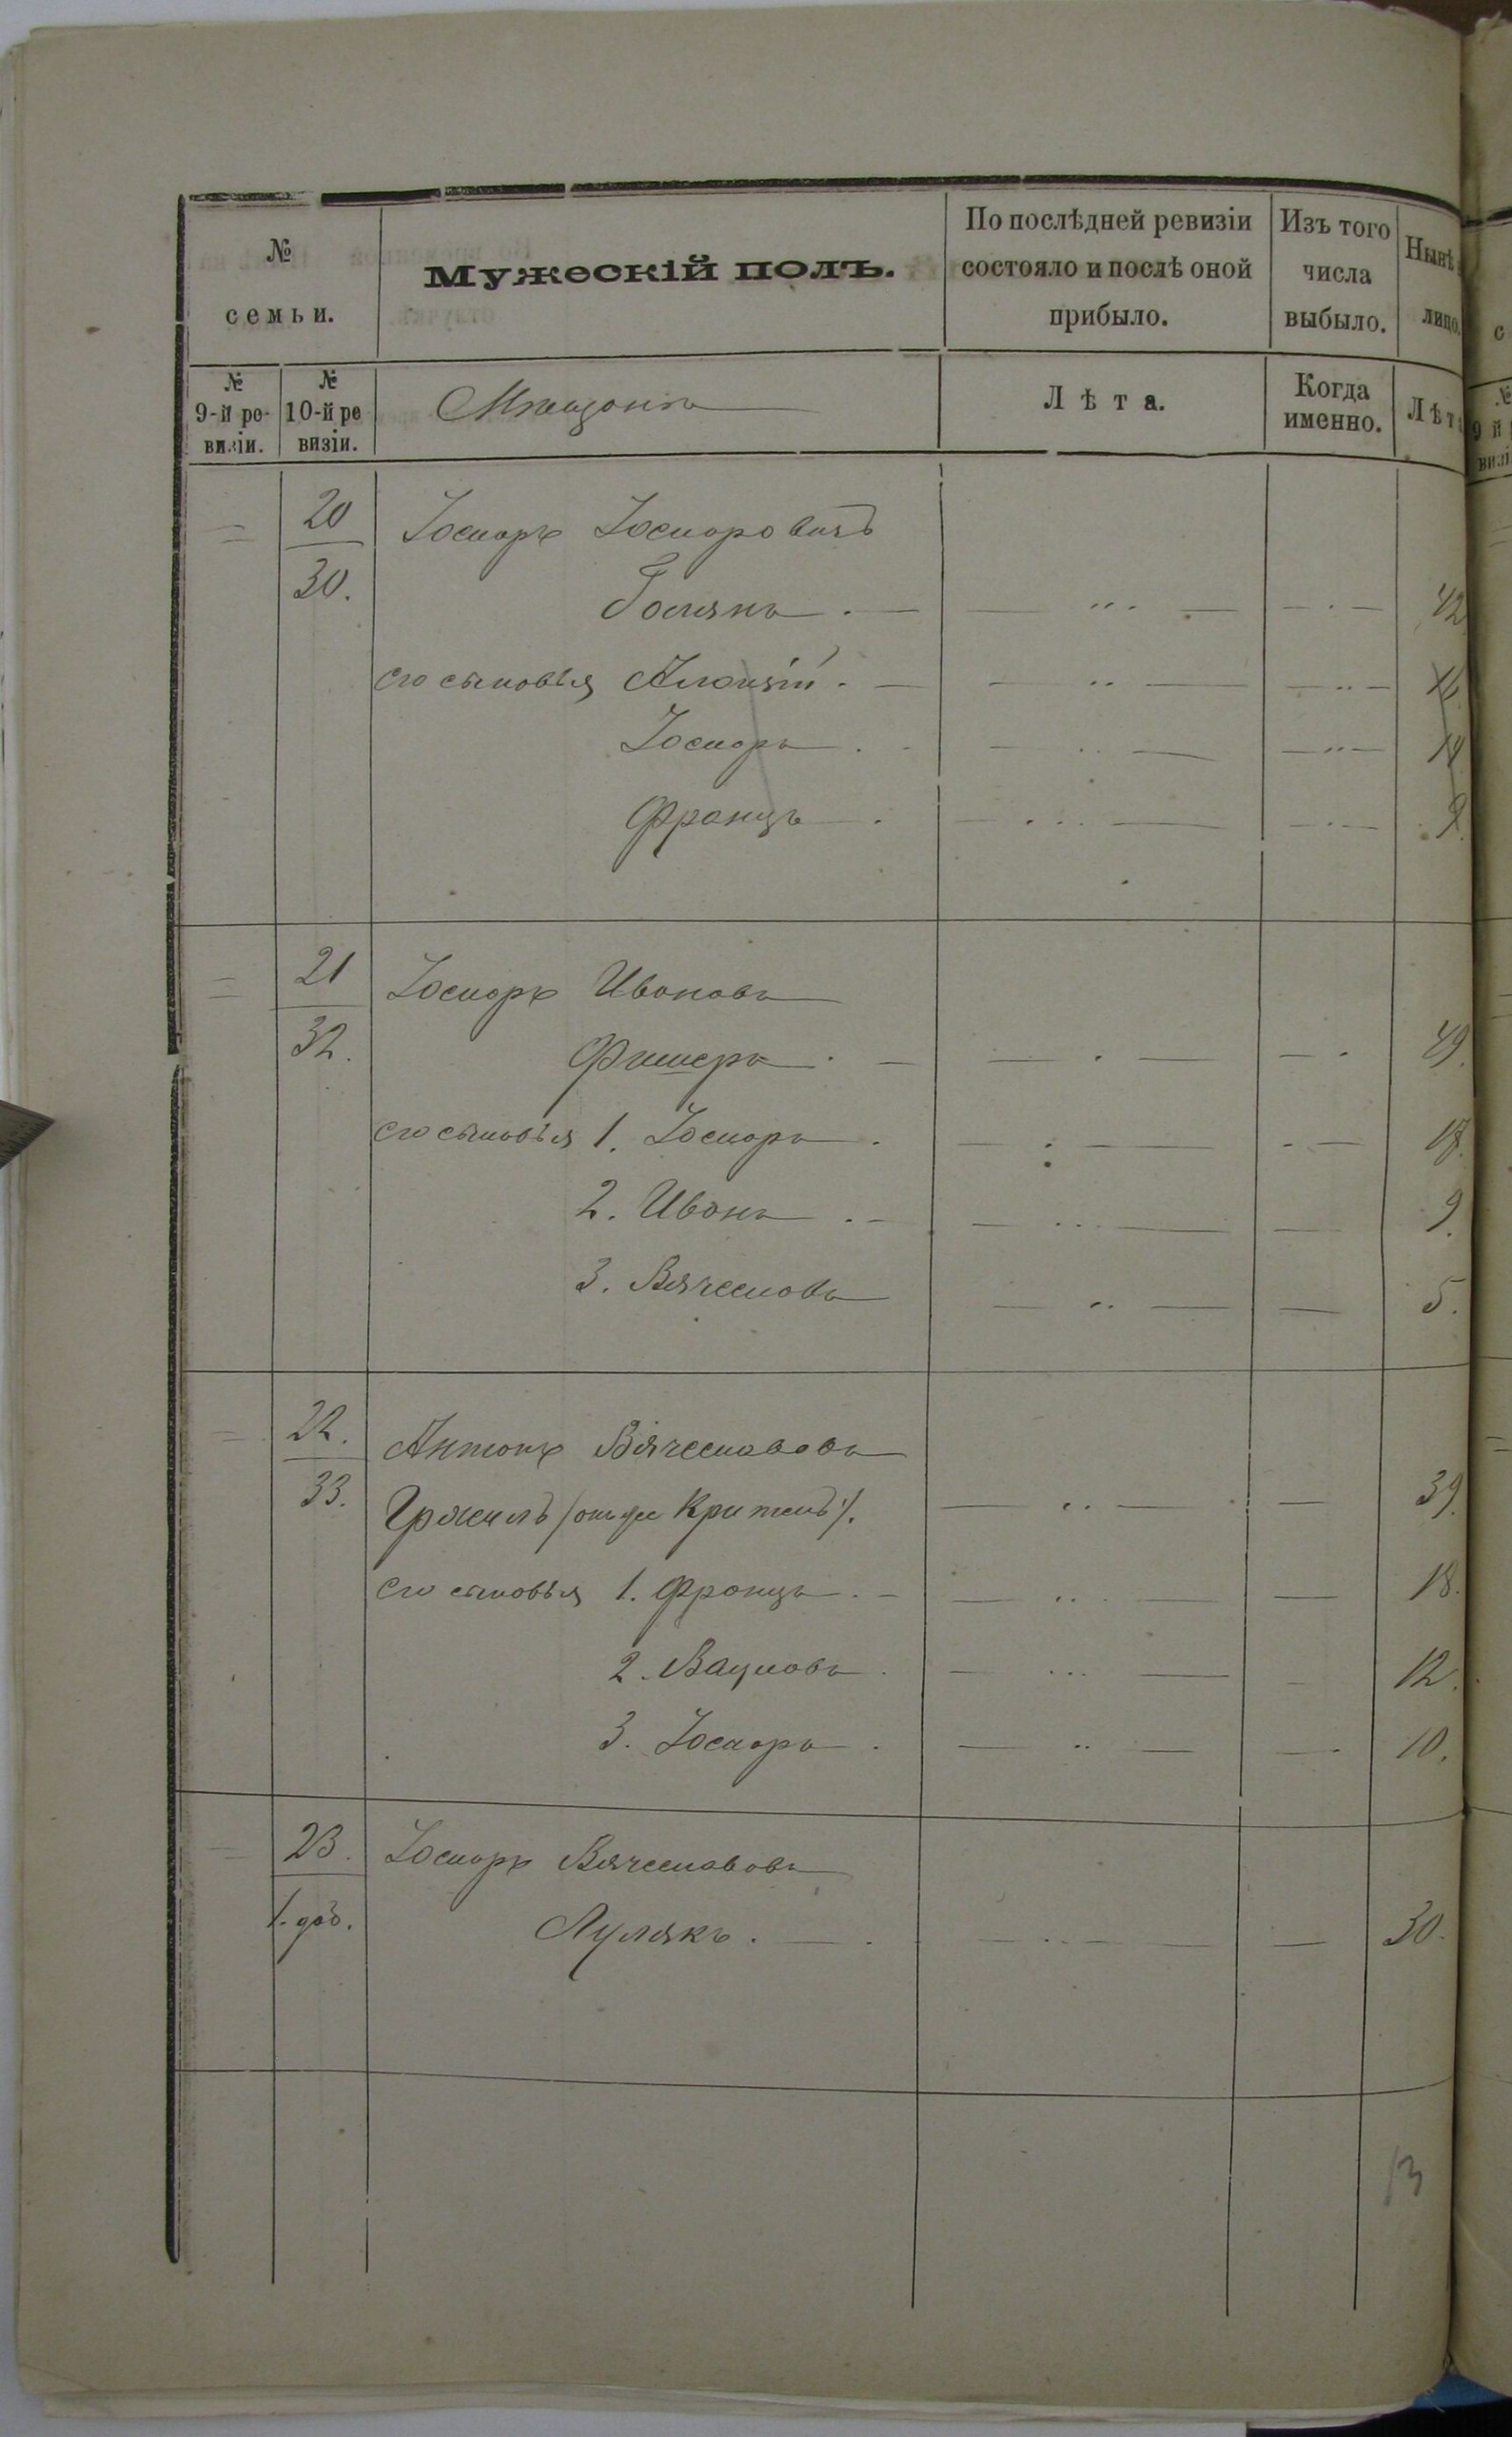 №
семьи.
Мужескій полъ.
По послѣдней ревизіи
состояло и послѣ оной
прибыло.
Изъ того
числа
выбыло.
Нынѣ
лицо.
№
9-й ре-
визіи.
№
10-й ре
визіи.
Мѣщанъ
Лѣта.
Когда
именно.
Лѣт
20
30.
Іосифъ Іосифовичъ
42
его сыновья Алоизій. 16
Іосифъ. 14
Францъ. 9
21
32.
Іосифъ Ивановъ
Фишеръ. 49.
его сыновья 1. Іосифъ. 17.
2. Иванъ. 9.
3. Вячеславъ 5.
22.
33.
Антонъ Вячеславовъ
39.
его сыновья 1. Францъ. 18.
2. Вацлавъ. 12.
3. Іосифъ. 10.
23.
1. доб.
Іосифъ Вячеславовъ
Лулякъ. 30.
13